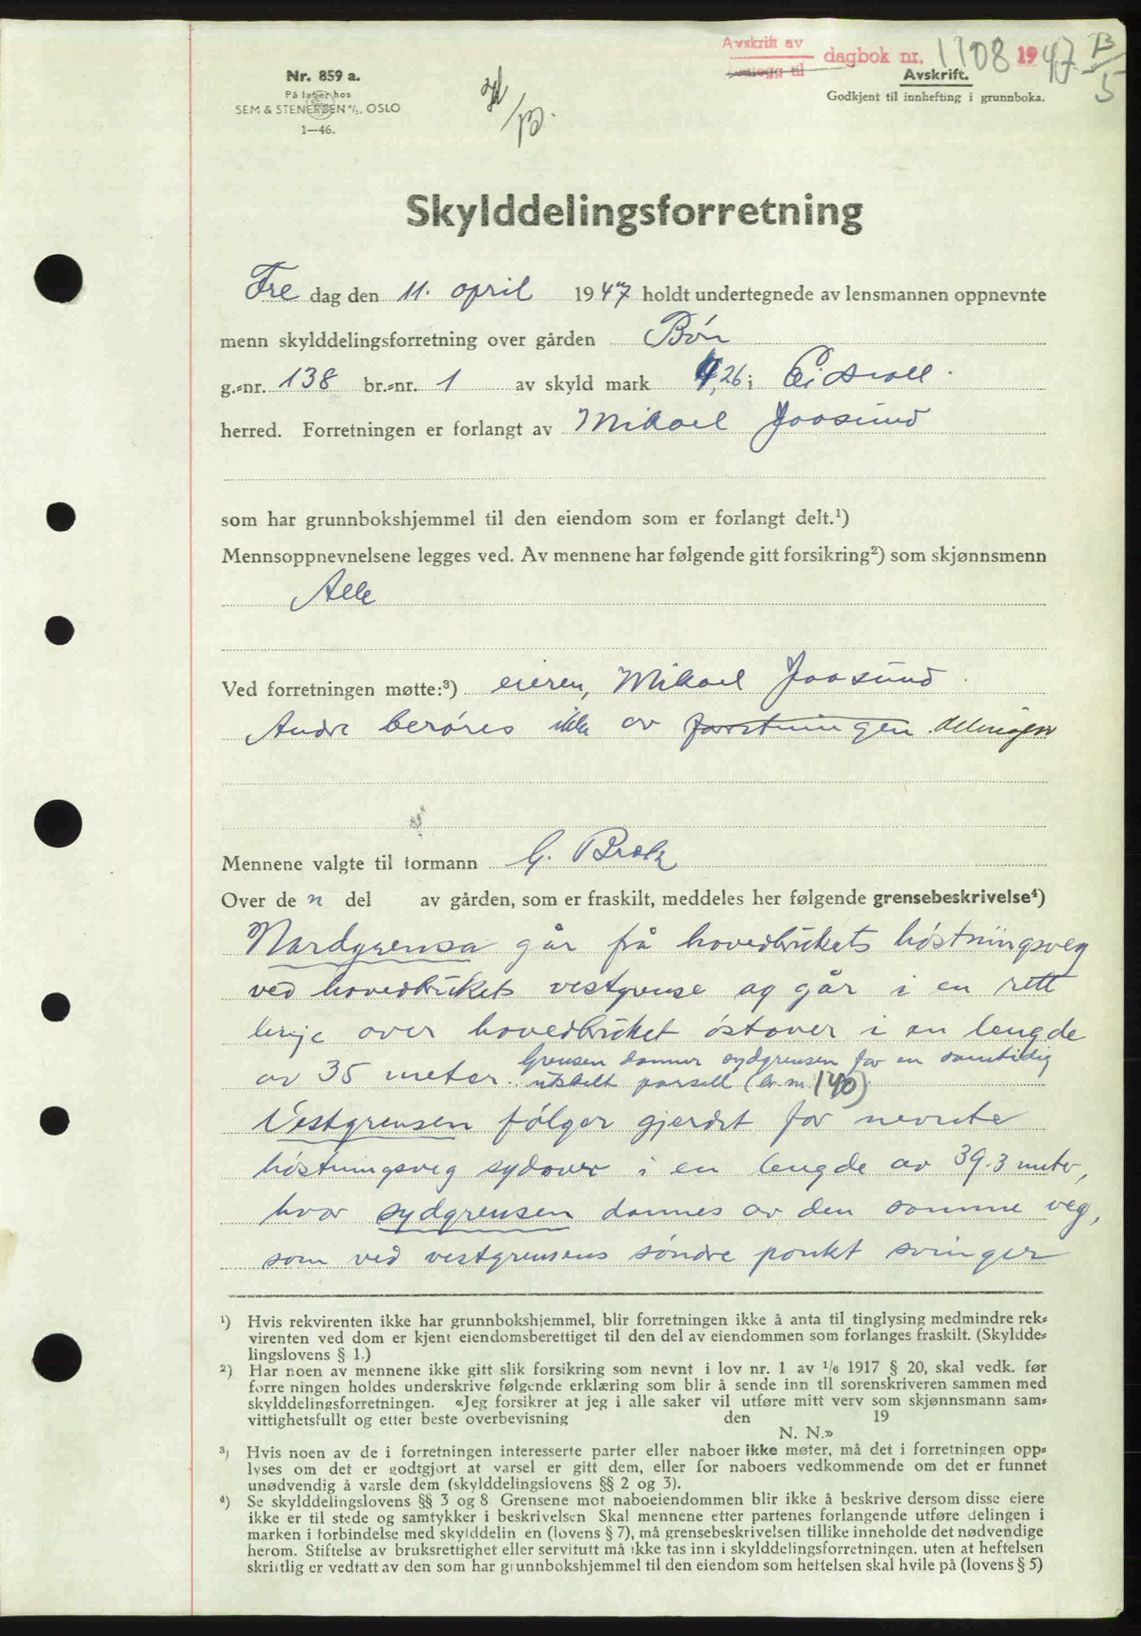 Avskrift av
dagbok nr. 1108 1947 B/5
Nr. 859 a.
På lager hos
SEM & STENERSEN A/S, OSLO
1—46.
Avskrift.
Godkjent til innhefting i grunnboka.
Skylddelingsforretning
Fre dag den 11. april 1947 holdt undertegnede av lensmannen oppnevnte
menn skylddelingsforretning over gården Bøn
g.-nr. 138 br.-nr. 1 av skyld mark 4,26 i Eidsvoll.
herred. Forretningen er forlangt av Mikael Joasund
som har grunnbokshjemmel til den eiendom som er forlangt delt.¹)
Mennsoppnevnelsene legges ved. Av mennene har følgende gitt forsikring²) som skjønnsmenn
Alle
Ved forretningen møtte:³) eieren, Mikael Joasund.
Andre berøres ikke av forretningen. delingen
Mennene valgte til formann G. Bræk
Over de n del av gården, som er fraskilt, meddeles her følgende grensebeskrivelse⁴)
Nordgrensa går frå hovedbrukets høstningsveg
ved hovedbrukets vestgrense og går i en rett
linje over hovedbruket østover i en lengde
av 35 meter. Grensen danner sydgrensen for en samtidig
utskilt parsell (br. nr. 140).
Vestgrensen følger gjerdet for nevnte
høstningsveg sydover i en lengde av 39.3 meter,
hvor sydgrensen dannes av den samme veg,
som ved vestgrensens søndre punkt svinger
¹) Hvis rekvirenten ikke har grunnbokshjemmel, blir forretningen ikke å anta til tinglysing medmindre rek-
virenten ved dom er kjent eiendomsberettiget til den del av eiendommen som forlanges fraskilt. (Skyldde-
lingslovens § 1.)
²) Har noen av mennene ikke gitt slik forsikring som nevnt i lov nr. 1 av 1/6 1917 § 20, skal vedk. før
forre ningen holdes underskrive følgende erklæring som blir å sende inn til sorenskriveren sammen med
skylddelingsforretningen. «Jeg forsikrer at jeg i alle saker vil utføre mitt verv som skjønnsmann sam-
vittighetsfullt og etter beste overbevisning den 19
N. N.»
³) Hvis noen av de i forretningen interesserte parter eller naboer ikke møter, må det i forretningen opp-
lyses om det er godtgjort at varsel er gitt dem, eller for naboers vedkommende om det er funnet
unødvendig å varsle dem (skylddelingslovens §§ 2 og 3).
⁴) Se skylddelingslovens §§ 3 og 8. Grensene mot naboeiendommen blir ikke å beskrive dersom disse eiere
ikke er til stede og samtykker i beskrivelsen Skal mennene etter partenes forlangende utføre delingen i
marken i forbindelse med skylddelin en (lovens § 7), må grensebeskrivelsen tillike inneholde det nødvendige
herom. Stiftelse av bruksrettighet eller servitutt må ikke tas inn i skylddelingsforretningen. uten at heftelsen
skriftlig er vedtatt av den som har grunnbokshjemmel til den eiendom som heftelsen skal hvile på (lovens § 5)